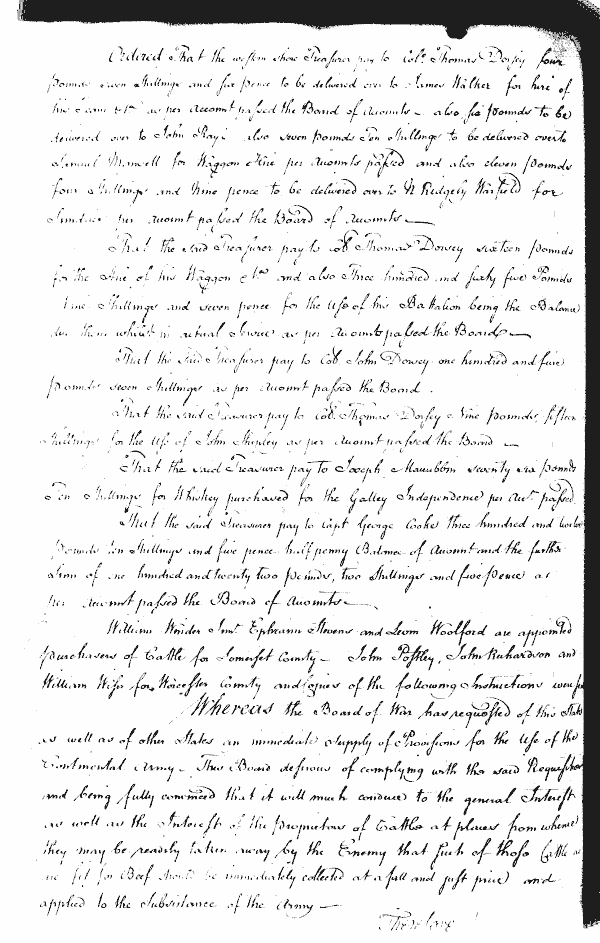 Ordered That the western shore Treasurer pay to Colo. Thomas Dorsey four
pounds seven shillings and six pence to be delivered over to James Walker for hire of
his Team &ca. as per Account passed the Board of Accounts – also six pounds to be
delivered over to John Ray; also seven pounds Ten shillings to be delivered over to
Samuel Mansell for Waggon Hire per Accounts passed and also eleven pounds
four shillings and Nine pence to be delivered over to N Ridgely Warfield for
Sundries per account passed the Board of Accounts –
That the said Treasurer pay to Col. Thomas Dorsey sixteen pounds
for the Hire of his Waggon &ca. and also Three hundred and sixty five Pounds
Nine Shillings and seven pence for the Use of his Battalion being the Balance
due them whilst in actual Service as per Accounts passed the Board –
That the said Treasurer pay to Col. John Dorsey one hundred and five
pounds seven Shillings as per Account passed the Board.
That the said Treasurer pay to Col. Thomas Dorsey Nine pounds fifteen
shillings for the Use of John Shipley as per Account passed the Board –
That the said Treasurer pay to Joseph seventy six pounds
Ten Shillings for Whiskey purchased for the Galley Independence per Acct. passed
That the said Treasurer pay to Capt George Cooke three hundred and twelve
pounds ten Shillings and five pence half penny Balance of Account and the further
Sum of one hundred and twenty two pounds, two Shillings and five pence as
per Account passed the Board of Accounts –
William Winder Junr. Ephraim Stevens and Levin Woolford are appointed
purchasers of Cattle for Somerset County – John Postley, John Richardson and
William Wise for Worcester County and Copies of the following Instructions were
Whereas the Board of War has requested of this State
as well as of other States an immediate supply of Provisions for the Use of the
Continental Army – This Board desirous of complying with the said Requisition
and being fully convinced that it will much conduce to the general Interest
as well as the Interest of the proprietors of Cattle at places from whence
they may be readily taken away by the Enemy that such of those Cattle as
are fit for Beef should be immediately collected at a full and just price and
applied to the Subsistance of the Army –
Therefore